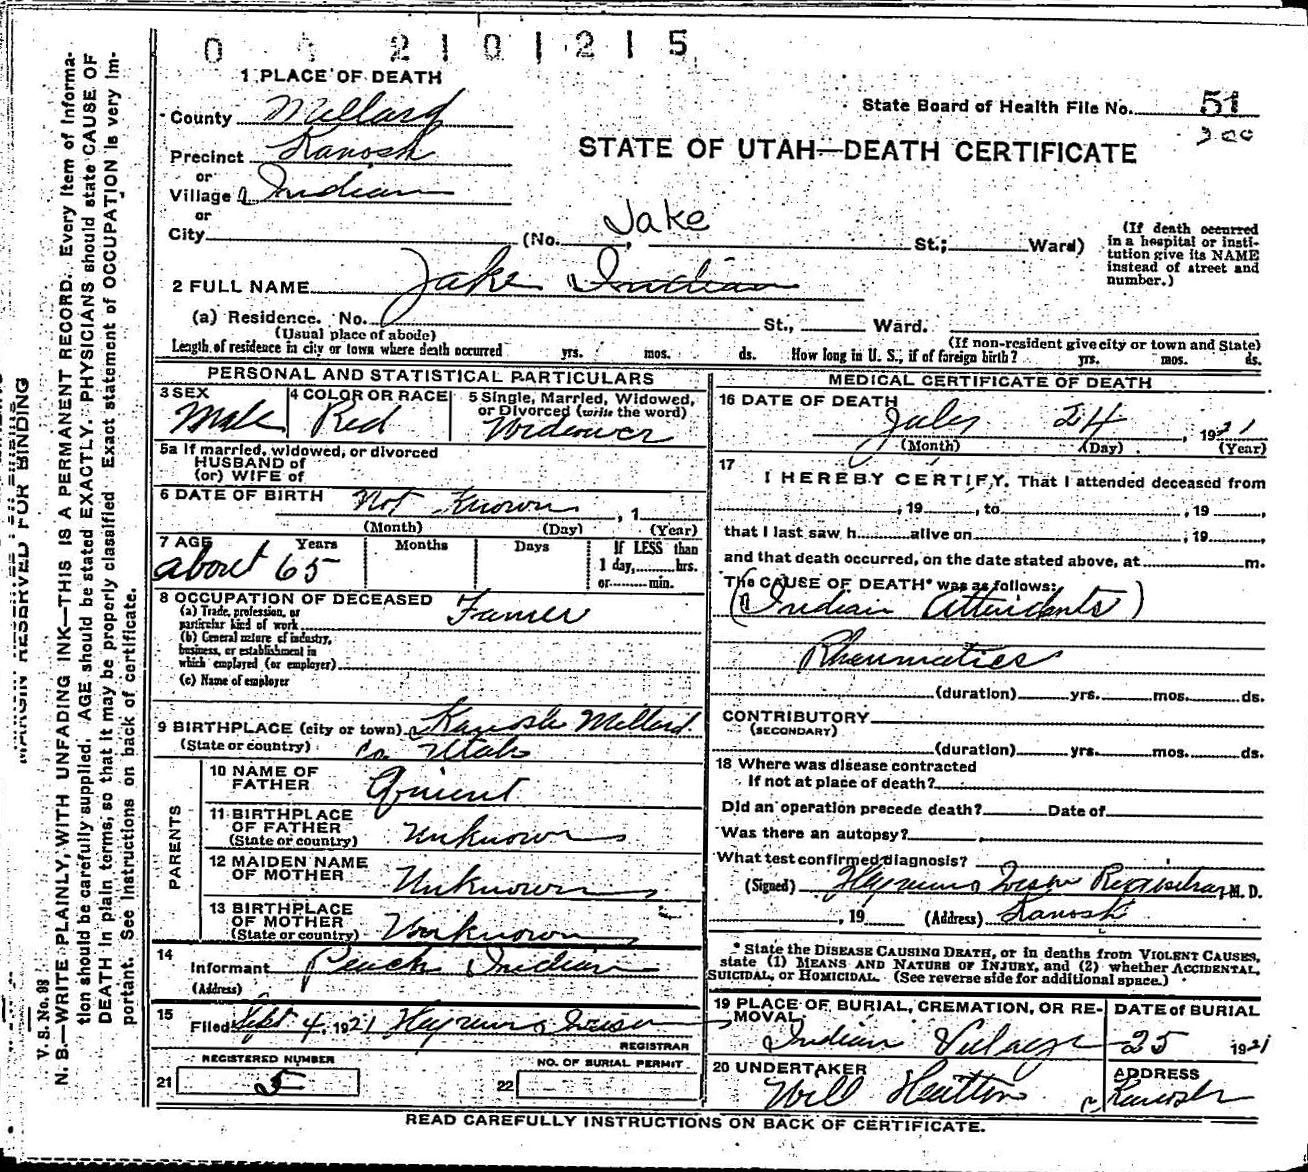 0 A 2 1 0 1 2 1 5
1 PLACE OF DEATH
County Millard
State Board of Health File No. 51
300
Precinct Kanosh
STATE OF UTAH—DEATH CERTIFICATE
or
Village Indian
or
City (No. Jake St.; Ward)
(If death occurred in a hospital or insti-
tution give its NAME instead of street and number.)
2 FULL NAME Jake Indian
(a) Residence. No. St., Ward.
(Usual place of abode) (If non-resident give city or town and State)
Length of residence in city or town where death occurred yrs. mos. ds. How long in U. S., if of foreign birth? yrs. mos. ds.
PERSONAL AND STATISTICAL PARTICULARS
3 SEX Male
4 COLOR OR RACE Red
5 Single, Married, Widowed, or Divorced (write the word) Widower
5a If married, widowed, or divorced
HUSBAND of
(or) WIFE of
6 DATE OF BIRTH Not Known, 1
(Month) (Day) (Year)
7 AGE about 65 Years Months Days If LESS than
1 day, hrs.
or min.
8 OCCUPATION OF DECEASED Farmer
(a) Trade, profession, or
particular kind of work
(b) General nature of industry,
business, or establishment in
which employed (or employer)
(c) Name of employer
9 BIRTHPLACE (city or town) Kanosh Millard
(State or country) Co. Utah
PARENTS
10 NAME OF FATHER
11 BIRTHPLACE OF FATHER (State or country) Unknown
12 MAIDEN NAME OF MOTHER Unknown
13 BIRTHPLACE OF MOTHER (State or country) Unknown
14 Informant Indian
(Address)
15 Filed Sept 4, 1921
REGISTRAR
REGISTERED NUMBER
21 5
NO. OF BURIAL PERMIT
22
MEDICAL CERTIFICATE OF DEATH
16 DATE OF DEATH July 24, 1921
(Month) (Day) (Year)
17 I HEREBY CERTIFY, That I attended deceased from
, 19 , to , 19 ,
that I last saw h alive on , 19 ,
and that death occurred, on the date stated above, at m.
The CAUSE OF DEATH* was as follows:
(Indian Attendants)
Rheumatics
(duration) yrs. mos. ds.
CONTRIBUTORY
(SECONDARY)
(duration) yrs. mos. ds.
18 Where was disease contracted
If not at place of death?
Did an operation precede death? Date of
Was there an autopsy?
What test confirmed diagnosis?
(Signed) Registrar, M. D.
, 19 (Address) Kanosh
* State the DISEASE CAUSING DEATH, or in deaths from VIOLENT CAUSES,
state (1) MEANS AND NATURE OF INJURY, and (2) whether ACCIDENTAL,
SUICIDAL, or HOMICIDAL. (See reverse side for additional space.)
19 PLACE OF BURIAL, CREMATION, OR RE-
MOVAL Indian Village
DATE of BURIAL
25 1921
20 UNDERTAKER
Will
ADDRESS
Kanosh
READ CAREFULLY INSTRUCTIONS ON BACK OF CERTIFICATE.
MARGIN RESERVED FOR BINDING
V. S. No. 98
N. B.—WRITE PLAINLY, WITH UNFADING INK—THIS IS A PERMANENT RECORD. Every item of informa-
tion should be carefully supplied. AGE should be stated EXACTLY. PHYSICIANS should state CAUSE OF
DEATH in plain terms, so that it may be properly classified. Exact statement of OCCUPATION is very im-
portant. See instructions on back of certificate.